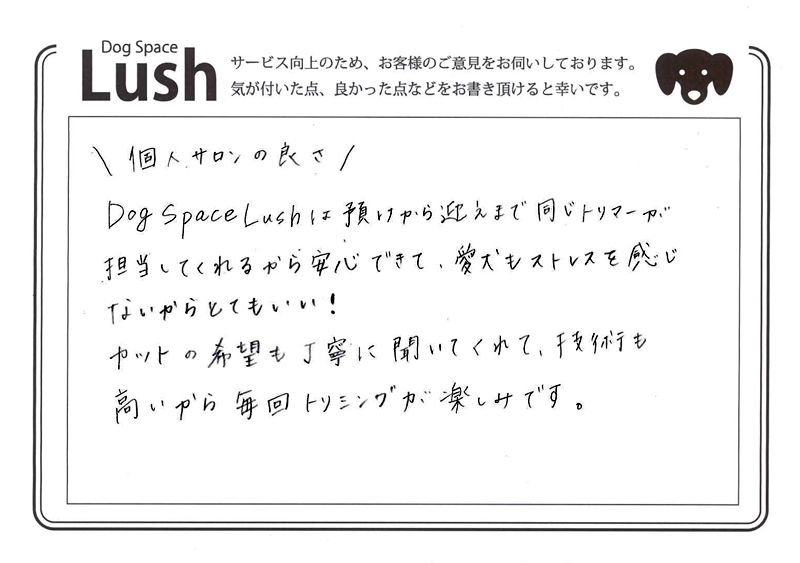 Dog Space
Lush
サービス向上のため、お客様のご意見をお伺いしております。
気が付いた点、良かった点などをお書き頂けると幸いです。
\ 個人サロンの良さ /
Dog Space Lushは預けから迎えまで同じトリマーが
担当してくれるから安心できて、愛犬もストレスを感じ
ないからとてもいい！
カットの希望も丁寧に聞いてくれて、技術も
高いから毎回トリミングが楽しみです。